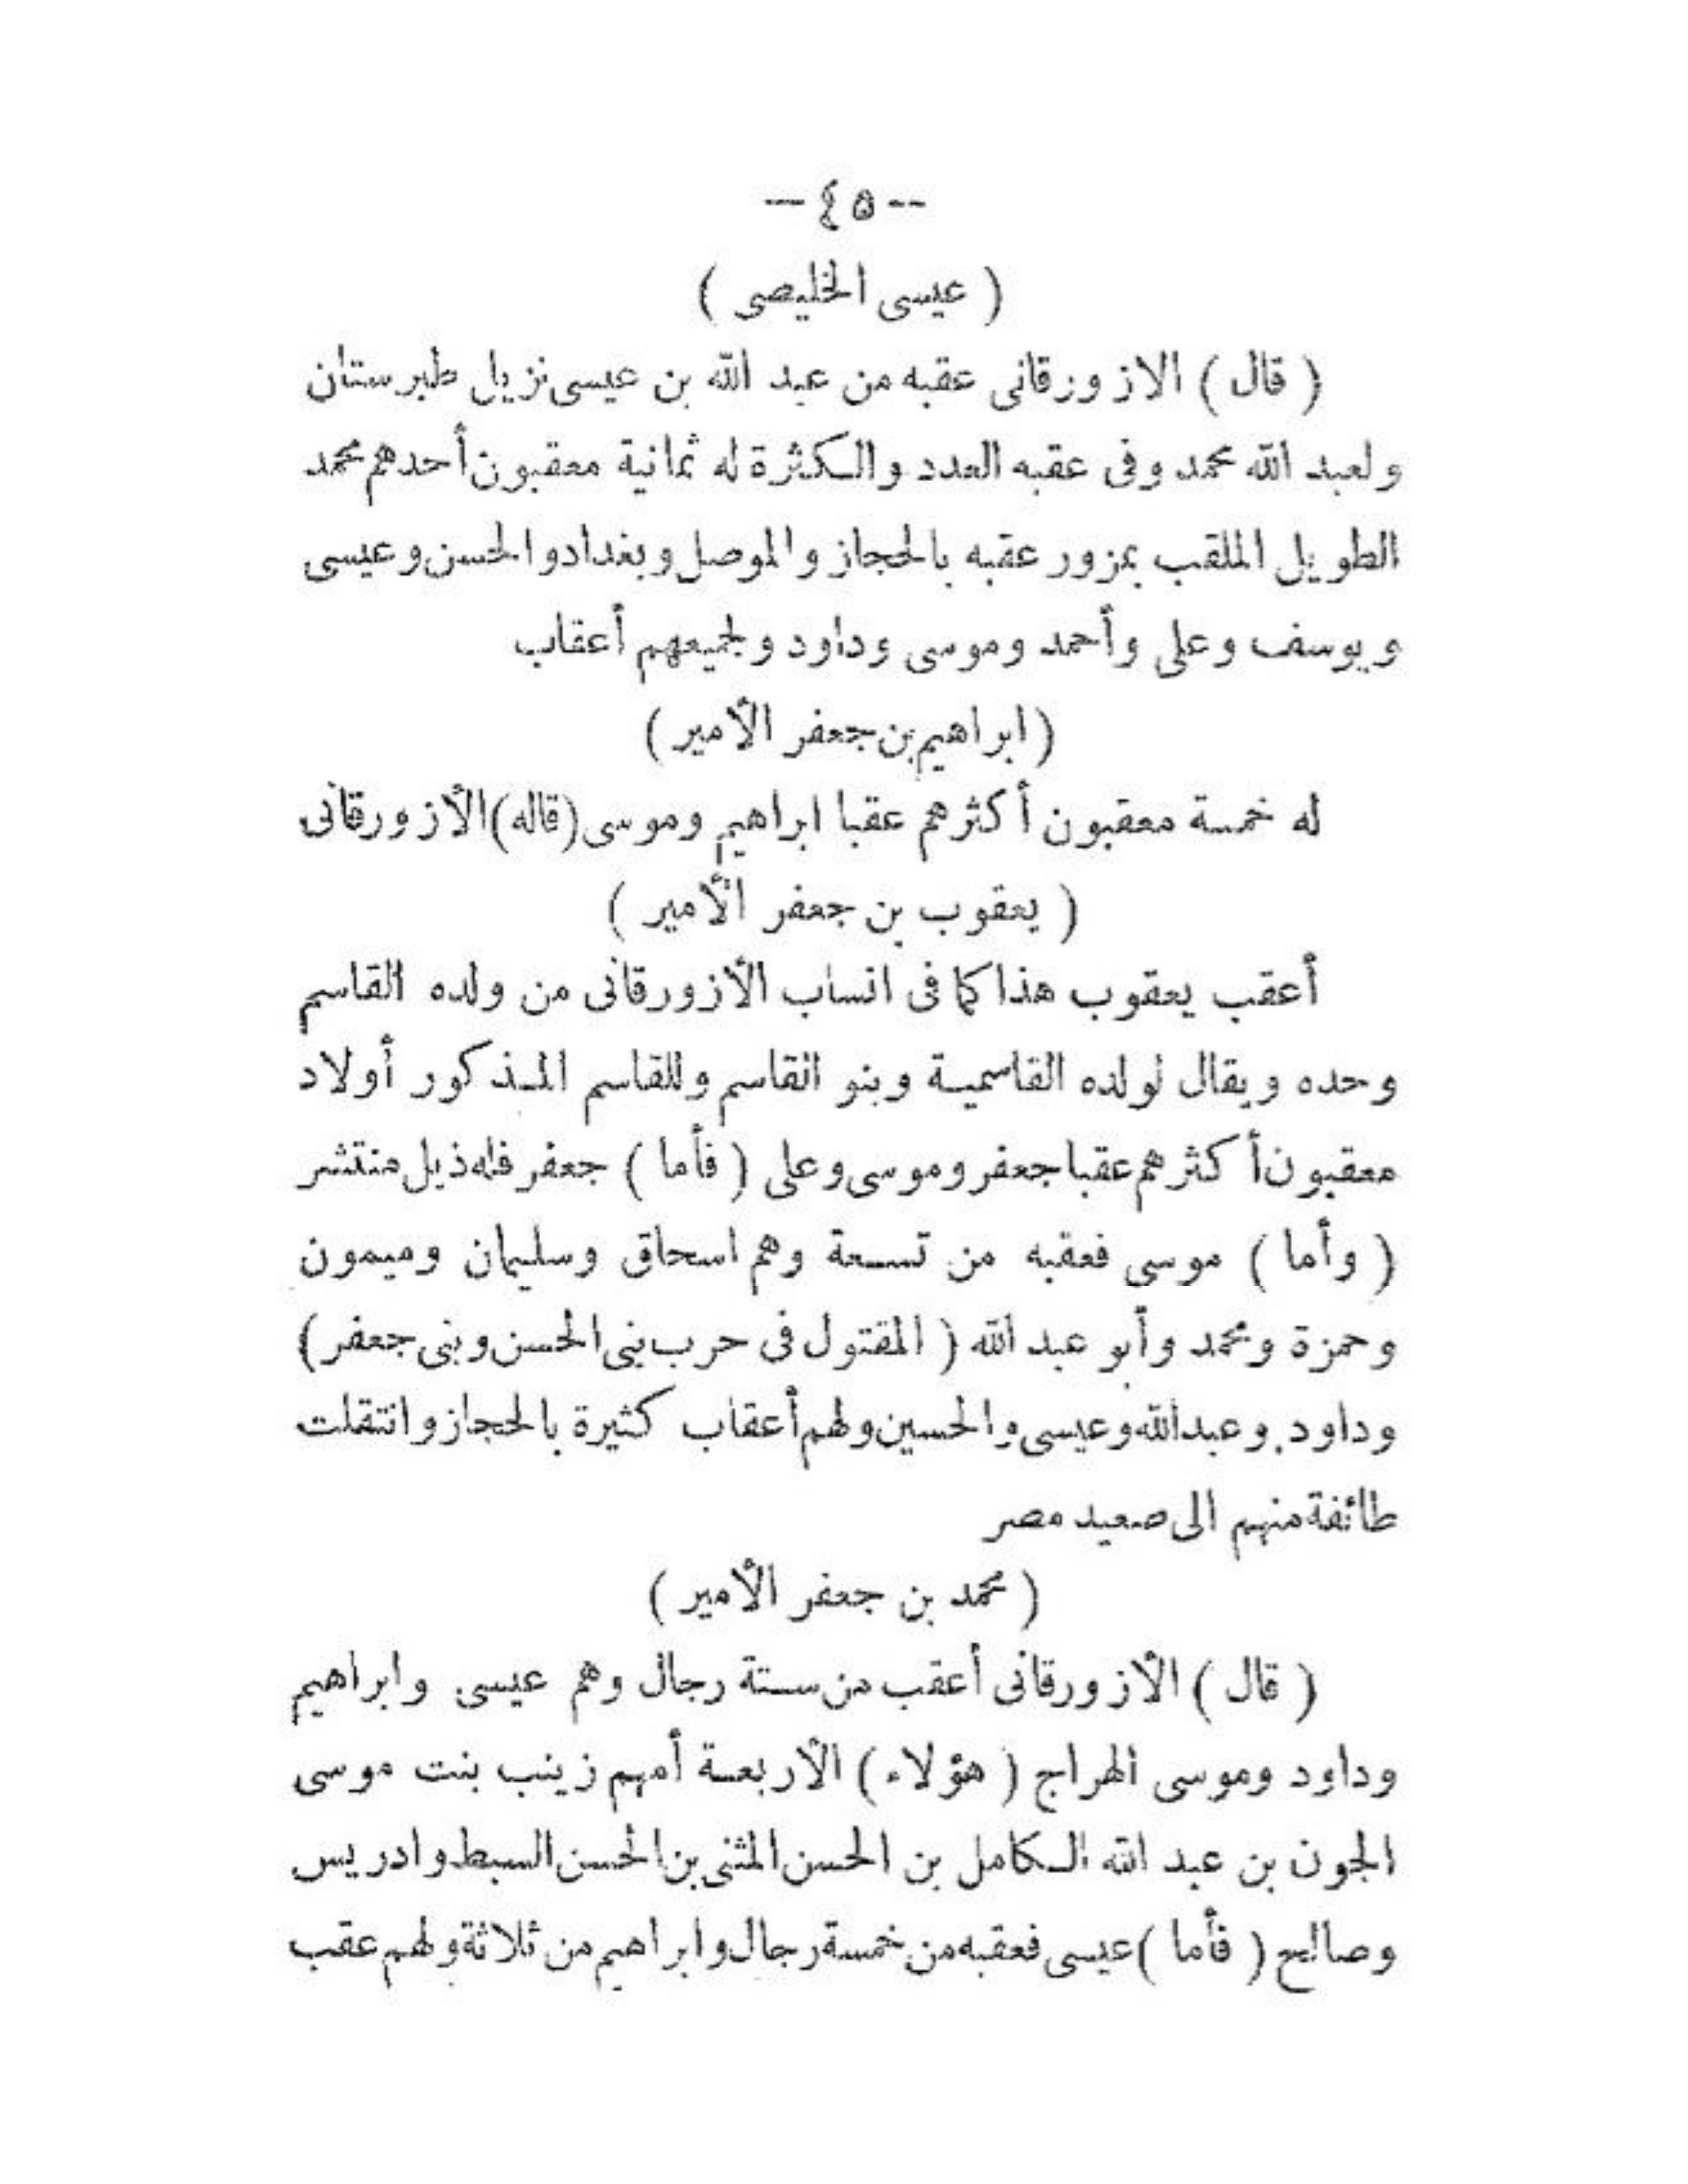 -- ٤٥ --
( عيسى الخليصى )
( قال ) الازورقانى عقبه من عبد الله بن عيسى نزيل طبرستان
ولعبد الله محمد وفى عقبه العدد والكثرة له ثمانية معقبون أحدهم محمد
الطويل الملقب بمزور عقبه بالحجاز والموصل وبغداد والحسن وعيسى
ويوسف وعلى وأحمد وموسى وداود ولجميعهم أعقاب
( ابراهيم بن جعفر الأمير )
له خمسة معقبون أكثرهم عقبا ابراهيم وموسى (قاله) الأزورقانى
( يعقوب بن جعفر الأمير )
أعقب يعقوب هذا كما فى انساب الأزورقانى من ولده القاسم
وحده ويقال لولده القاسمية وبنو القاسم وللقاسم المذكور أولاد
معقبون أكثرهم عقبا جعفر وموسى وعلى ( فأما ) جعفر فله ذيل منتشر
( وأما ) موسى فعقبه من تسعة وهم اسحاق وسليمان وميمون
وحمزة ومحمد وأبو عبد الله ( المقتول فى حرب بنى الحسن وبنى جعفر )
وداود وعبد الله وعيسى والحسين ولهم أعقاب كثيرة بالحجاز وانتقلت
طائفة منهم الى صعيد مصر
( محمد بن جعفر الأمير )
( قال ) الأزورقانى أعقب من ستة رجال وهم عيسى وابراهيم
وداود وموسى الهراج ( هؤلاء ) الأربعة أمهم زينب بنت موسى
الجون بن عبد الله الكامل بن الحسن المثنى بن الحسن السبط وادريس
وصالح ( فأما ) عيسى فعقبه من خمسة رجال وابراهيم من ثلاثة ولهم عقب